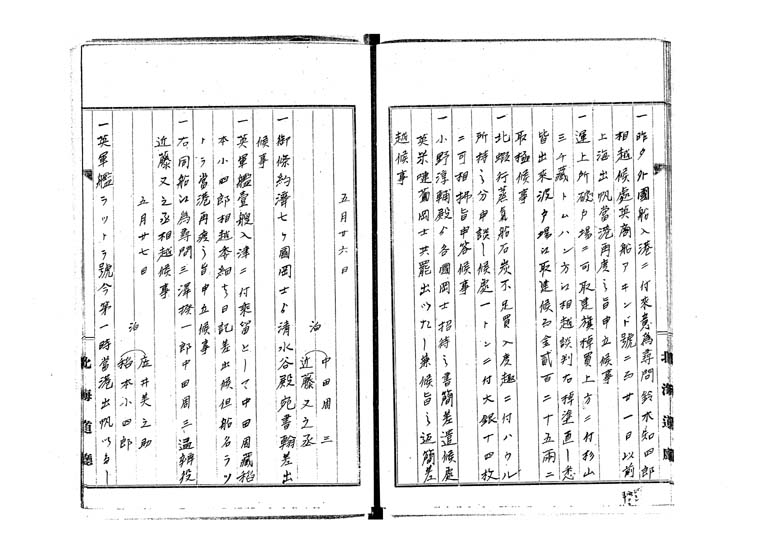 一昨夕外國船入港ニ付来意為尋問鈴木知四郎
相越候處英商船アキンド號ニ而廿一日以前
上海出帆當港再度之旨申立候事
一運上所砲タ場ニ可取建旗棹買上方ニ付杉山
三ケ蔵トムハン方江相越談判右棹塗直し悉
皆出来波戸場江取建候而金貳百二十五兩ニ
取極候事
一北蝦行蒸氣船石炭不足買入度趣ニ付ハウル
所持之分申談し候處一トンニ付大銀十四枚
ニ可相拂旨申答候事
一小野淳輔殿より各國岡士招待之書簡差遣候處
英米嘆葡岡士共罷出いたし兼候旨之返簡差
越候事
五月廿六日
泊 中田周三
近藤又之丞
一御條約濟七ケ國岡士より清水谷殿宛書翰差出
候事
一英軍艦壹艘入津ニ付乗留として中田周蔵稲
本小四郎相越委細者日記差出候但船名ラツ
トラ當港再度之旨申立候事
一右同船江為尋問三澤揆一郎中田周三温辨役
近藤又之丞相越候事
五月廿七日
泊 庄井美之助
稲本小四郎
一英軍艦ラツトラ號今第一時當港出帆いたし
北海道廳
北海道廳